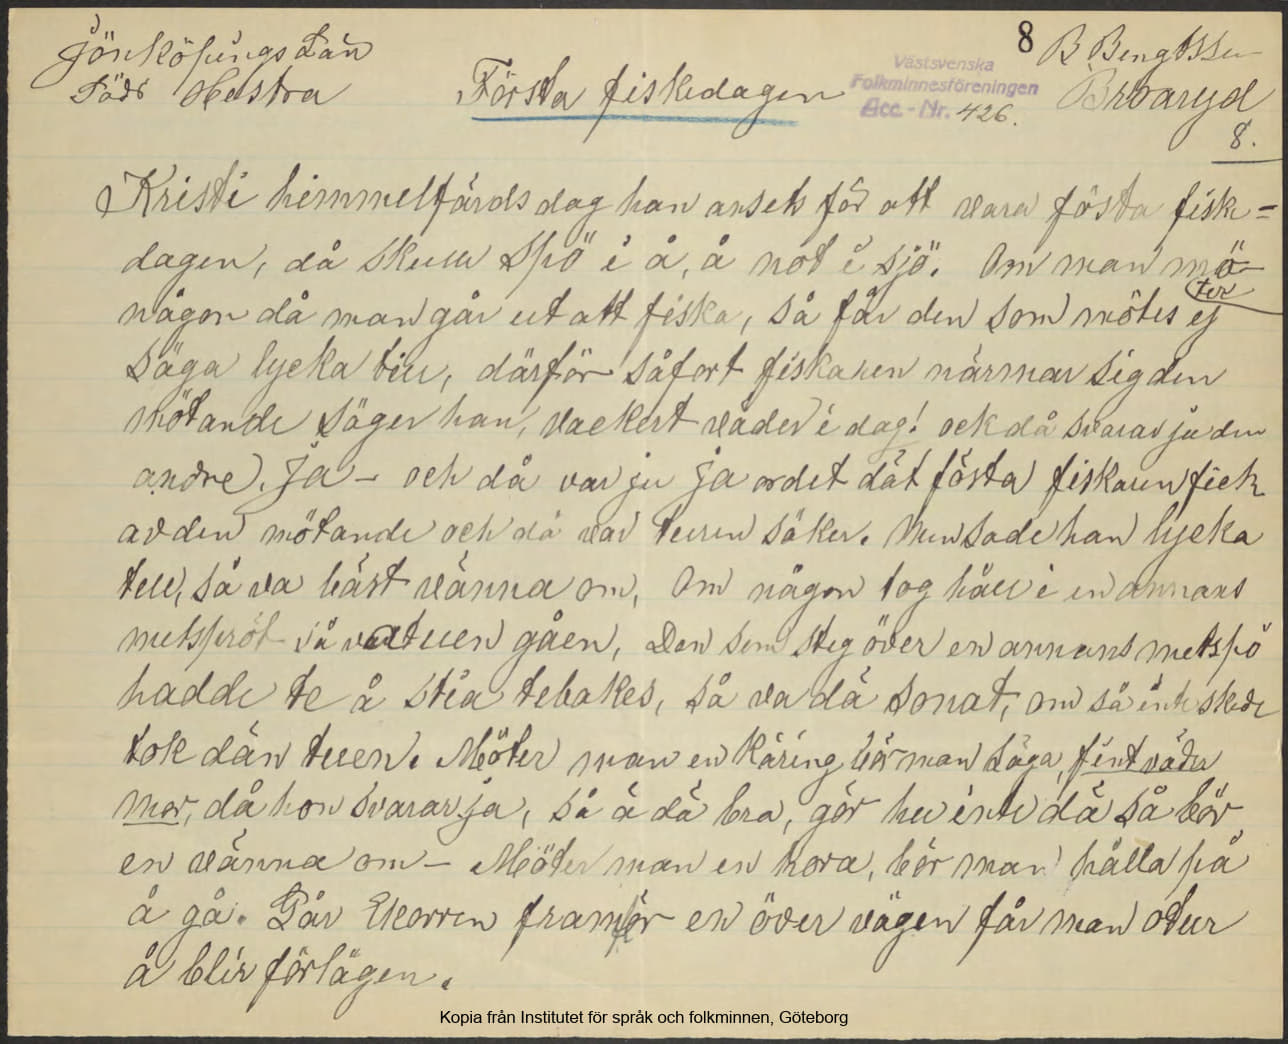 Jönköpings Län
Södr Hestra
Första fiskedagen
8
Västsvenska
Folkminnesföreningen
Acc. - Nr. 426.
B Bengtsson
Broaryd
8.
Kristi himmelfärds dag han ansets för att vara fösta fiske=
dagen, då skulle spö i å, å not i sjö. Om man mö-
ter
någon då man går ut att fiska, så får den som mötes ej
säga lycka till, därför såfort fiskaren närmar sig den
mötande säger han, vackert väder i dag! ock då svarar ju den
andre). ja - och då var ju ja ordet dät fösta fiskaren fick
av den mötande och då var turen säker. Men sade han lycka
till, så va bäst vänna om, Om någon tog håll i en annans
metspröt så var tuen gåen, Den som steg över en annans metspö
hadde te å stia tebakes, så va dä sonat, om så inte skede
tok dän tuen. Möter man en käring bör man säga, fint väder
mor, då hon svarar ja, så ä dä bra, gör hu inte dä så bör
en vänna om - Möter man en hora, bör man hålla på
å gå. Går Ekorren framför en över vägen får man otur
å blir förlägen.
Kopia från Institutet för språk och folkminnen, Göteborg